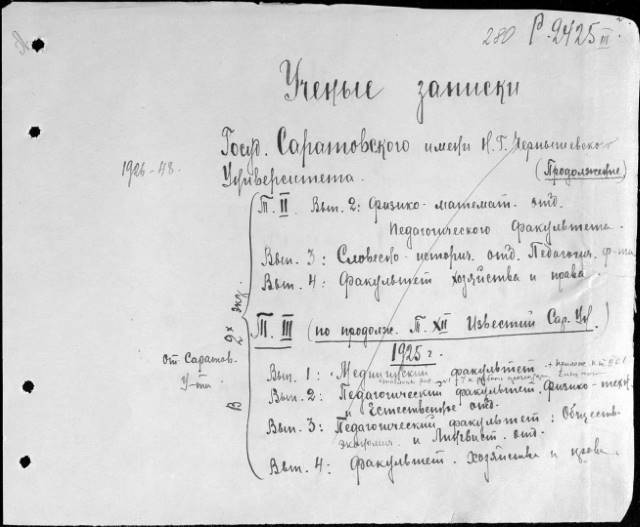 280 Р.2425 III
Ученые записки
Госуд. Саратовского имени Н.Г. Чернышевского
1926-48.
Университета. (Продолжение)
Т. II Вып. 2: Физико-математ. отд.
Педагогического Факультета.
Вып. 3: Словесно-историч. отд. Педагогич. ф-та
Вып. 4: Факультет хозяйства и права.
В 2х экз.
Т. III (по продолж. Т. XII Известий Сар. Ун.)
1925 г.
от Саратов.
У-та.
Вып. 1: Медицинский факультет
Вып. 2: Педагогический факультет. Физико-
и Естественное отд.
Вып. 3: Педагогический факультет: Обществ-
экономич. и Лингвист. отд.
Вып. 4: Факультет. Хозяйства и права.